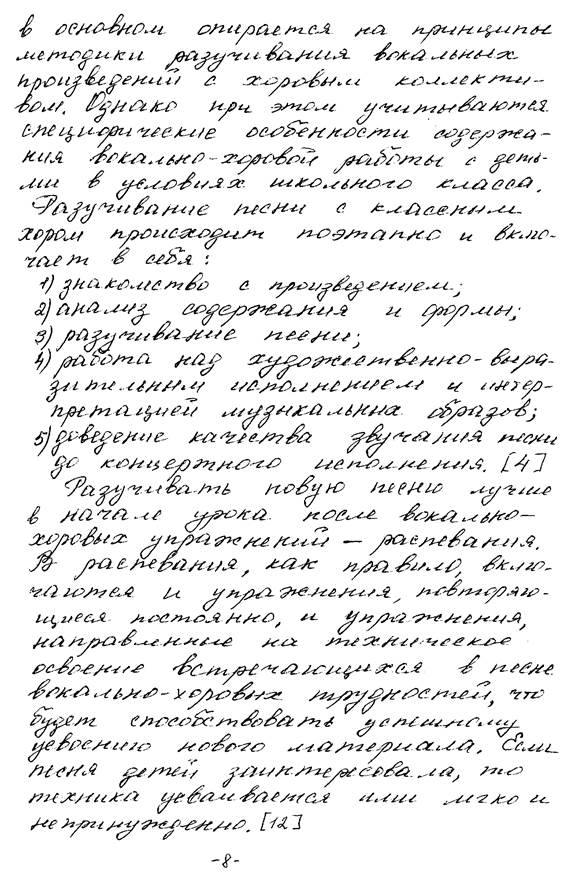 в основном опирается на принципы
методики разучивания вокальных
произведений с хоровым коллекти-
вом. Однако при этом учитываются
специфические особенности содержа-
ния вокально-хоровой работы с деть-
ми в условиях школьного класса.
Разучивание песни с классным
хором происходит поэтапно и вклю-
чает в себя:
1) знакомство с произведением;
2) анализ содержания и формы;
3) разучивание песни;
4) работа над художественно-выра-
зительным исполнением и интер-
претацией музыкальных образов;
5) доведение качества звучания песни
до концертного исполнения. [4]
Разучивать новую песню лучше
в начале урока после вокально-
хоровых упражнений – распевания.
В распевания, как правило, вклю-
чаются и упражнения, повторяю-
щиеся постоянно, и упражнения,
направленные на техническое
освоение встречающихся в песне
вокально-хоровых трудностей, что
будет способствовать успешному
усвоению нового материала. Если
песня детей заинтересовала, то
техника усваивается ими легко и
непринужденно. [12]
-8-